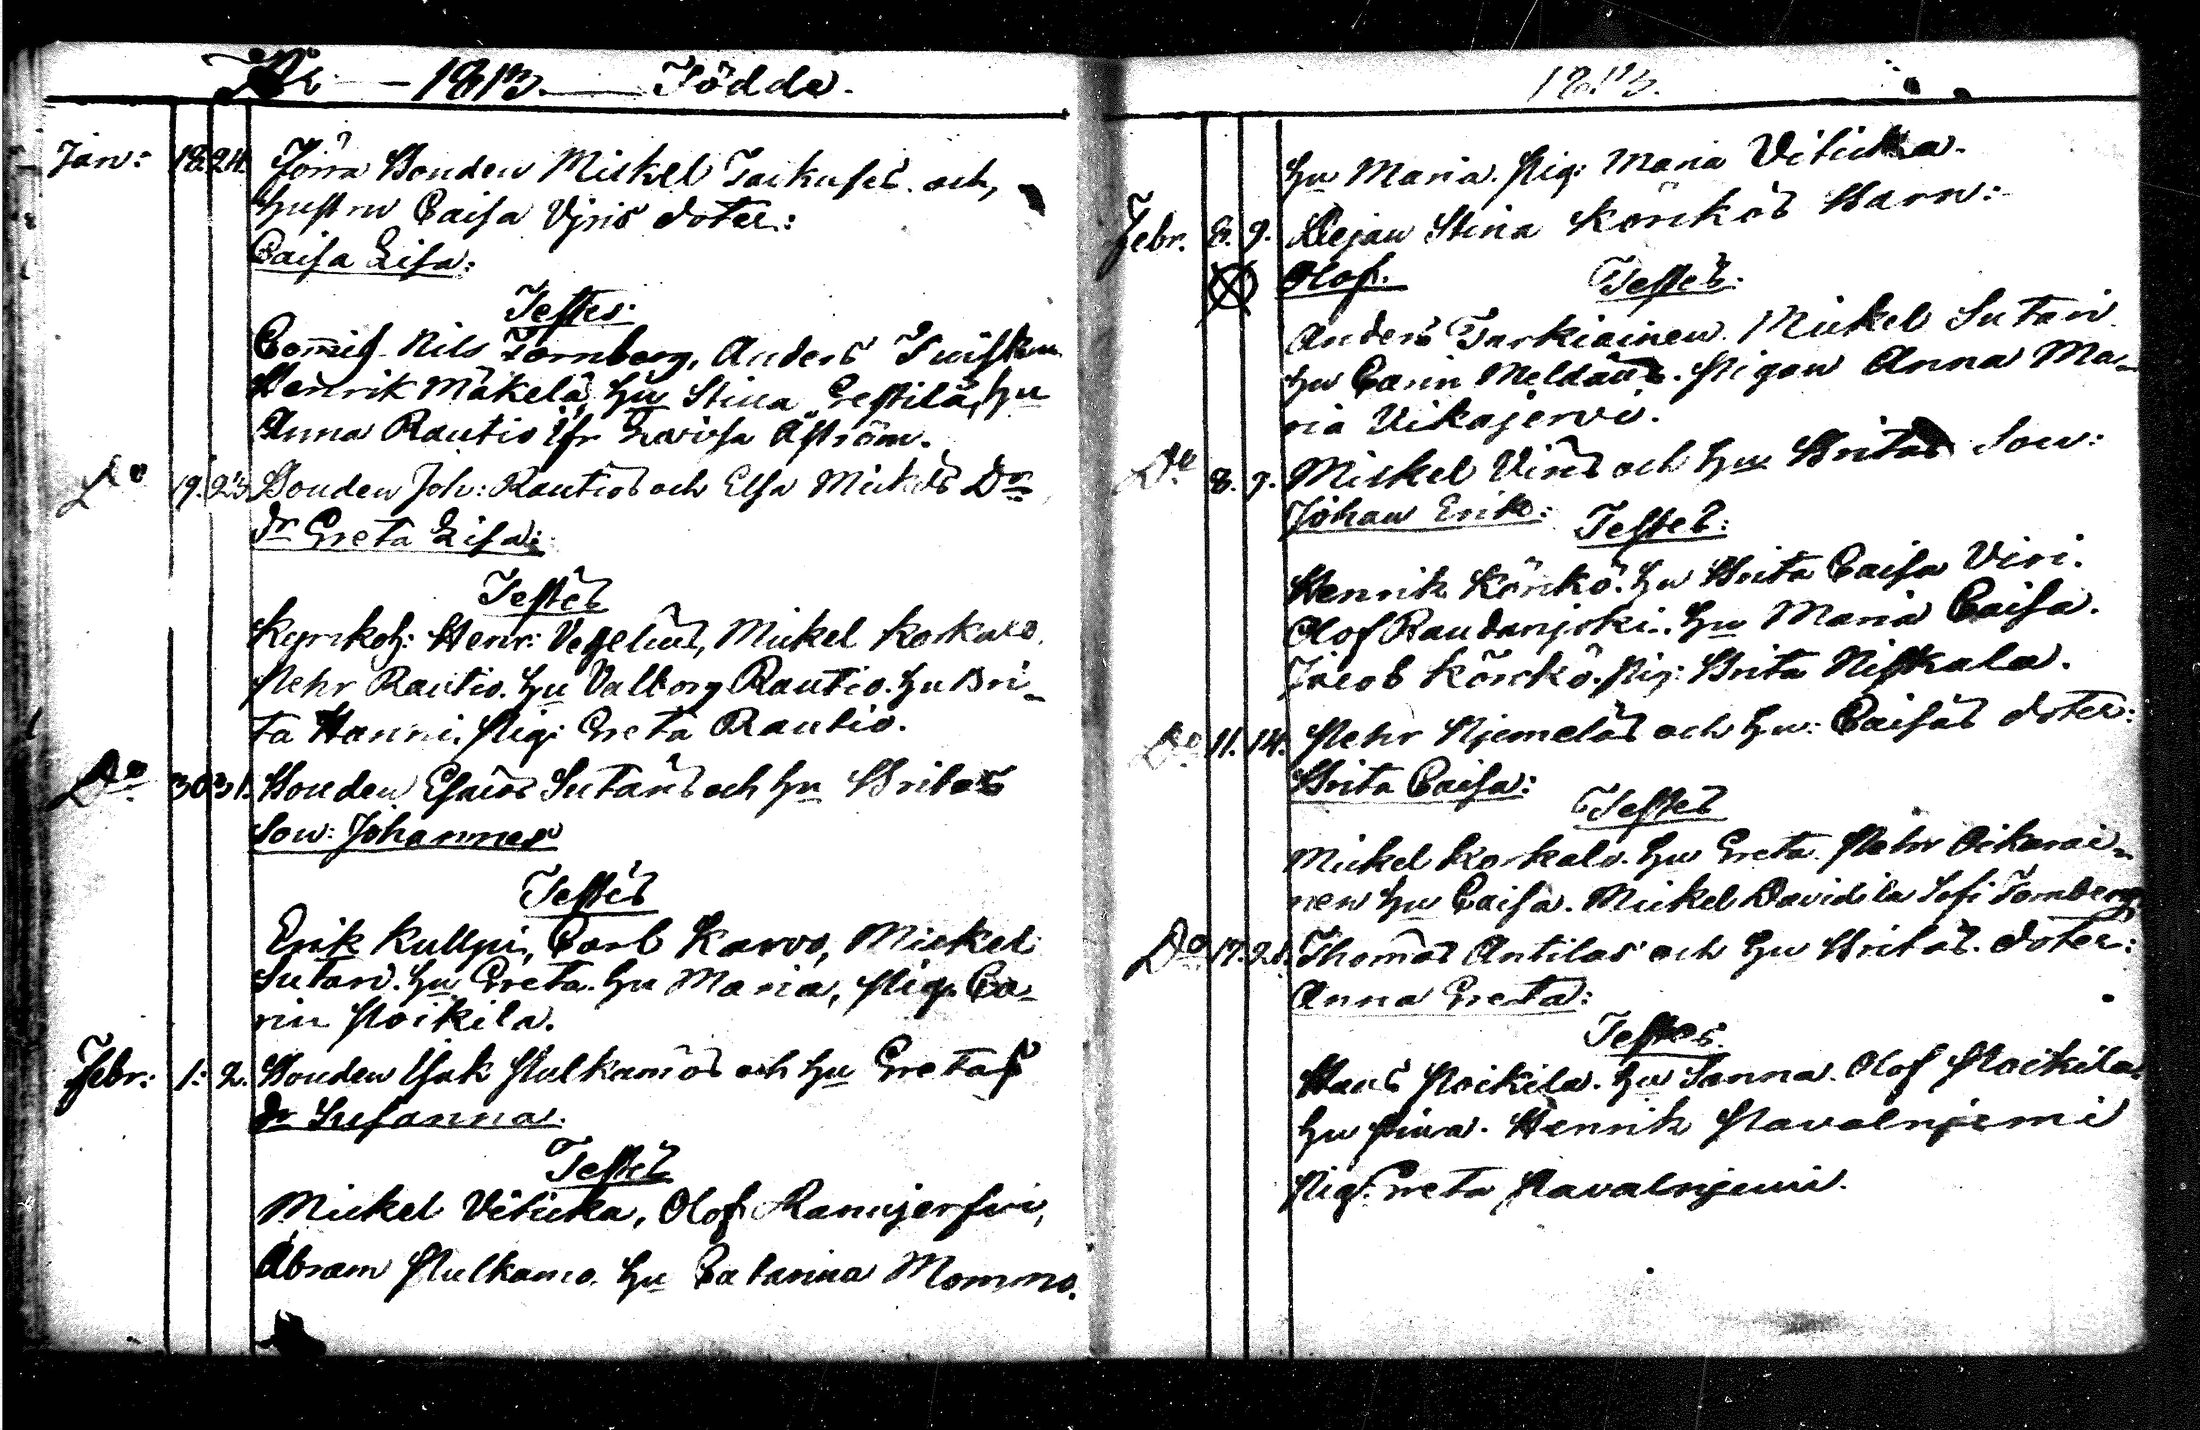 År 1813. Födde.
Jan: 18. 24. Förra Bonden Mickel Taikuses och,
Hustru Caisa Vjris doter:
Caisa Lisa:
Testes:
Com̄iss Nils Tornberg, Anders
Henrik Mäkelä, Hu Stina Erkkilä, Hu
Anna Rautio Jfr Lovisa Åström.
Do 19. 23. Bonden Joh: Rautios och Elsa Mickels Dr
dr Greta Lisa:
Testes
Kyrkoh: Henr: Vegelius, Mickel Korkalo,
Pehr Rautio. Hu Valborg Rautio. Hu Bri-
ta Hanni. Pig: Greta Rautio.
Do 30 31. Bonden Esaias Sutaris och Hu Britas
Son: Johannes
Testes
Erik Kullpi, Carl Karvo, Mickel
Sutari. Hu Greta. Hu Maria, Pig. Ca-
rin Poikila.
Febr: 1. 2. Bonden Isak Pulkamos och Hu Gretas
dr Susanna.
Testes
Mickel Vitikka, Olof Ranujerfwi,
Abram Pulkamo. Hu Catarina Mommo.
1813.
Hu Maria. Pig: Maria Vitikka.
Febr. 8. 9. Pigan Stina Körkös Barn:
Olof. Testes:
Anders Turkiainen. Mickel Sutari
Hu Carin Meldaus. Pigan Anna Ma-
ria Vikajervi.
Do 8. 9. Mickel Viris och Hu Britas Son:
Johan Erik: Testes:
Henrik Körkö. Hu Brita Caisa Viri.
Olof Raudanjoki. Hu Maria Caisa.
Jacob Körkö. Pig: Brita Niskala.
Do 11. 14. Pehr Njemeläs och Hu: Caisas doter:
Brita Caisa:
Testes
Mickel Korkalo. Hu Greta. Pehr Oikarai-
nen Hu Caisa. Mickel Davidila Sofi Tornberg
Do 17. 21. Thomas Antilas och Hu Britas. doter:
Anna Greta:
Testes.
Hans Poikila. Hu Sanna. Olof Poikila.
Hu Stina. Henrik Pavalnjemi
Pig. Greta Pavalnjemi.